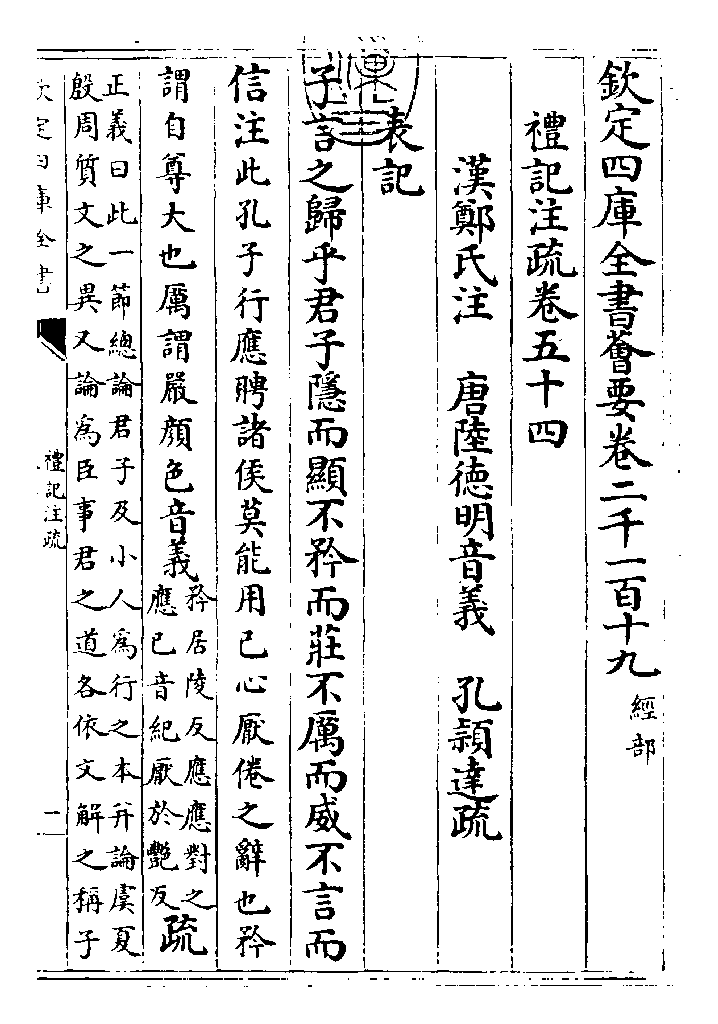 欽定四庫全書薈要卷二千一百十九 經部
禮記注疏卷五十四
漢鄭氏注 唐陸徳明音義 孔穎達疏
表記
子言之歸乎君子隱而顯不矜而莊不厲而威不言而
信注此孔子行應聘諸侯莫能用已心厭倦之辭也矜
謂自尊大也厲謂嚴顔色音義矜居陵反應應對之
應已音紀厭於艷反疏
正義曰此一節總論君子及小人為行之本并論虞夏
殷周質文之異又論為臣事君之道各依文解之稱子
欽定四庫全書
禮記注疏
一